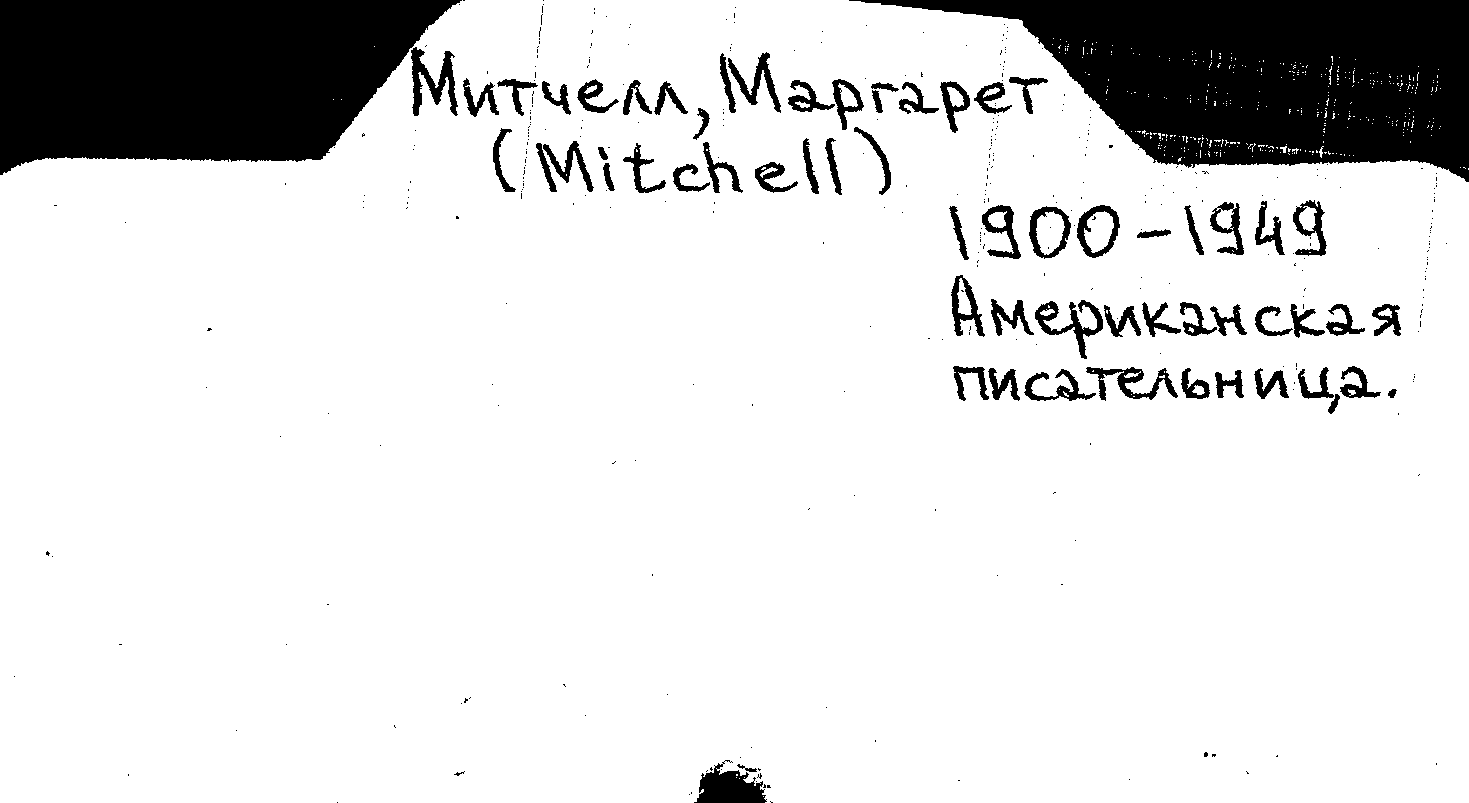 Митчелл, Маргарет
(Mitchell)
1900-1949
Американская
писательница.